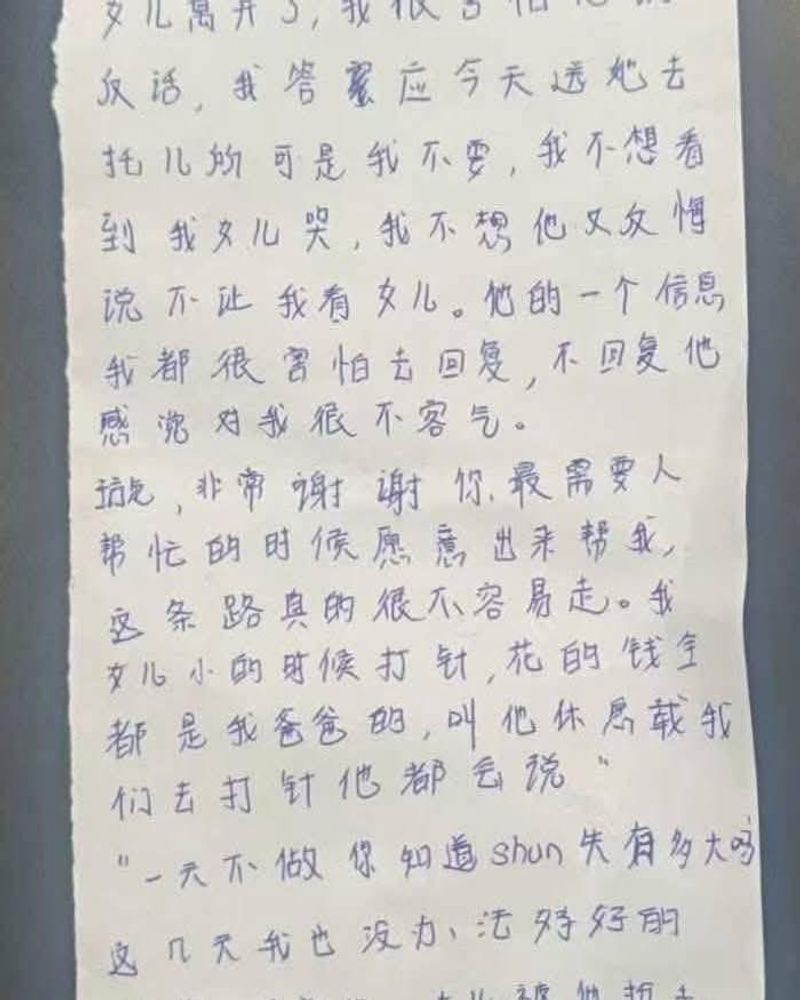 女儿离开了,我很害怕他的
反话,我答应今天送她去
托儿所可是我不要,我不想看
到我女儿哭,我不想他又反悔
说不让我看女儿。他的一个信息
我都很害怕去回复,不回复他
感觉对我很不容气。
,非常谢谢你、最需要人
帮忙的时候愿意出来帮我,
这条路真的很不容易走。我
女儿小的时候打针,花的钱全
都是我爸爸的,叫他休息载我
们去打针他都会说"
"一天不做你知道shun失有多大吗
这几天我也没办法好好的